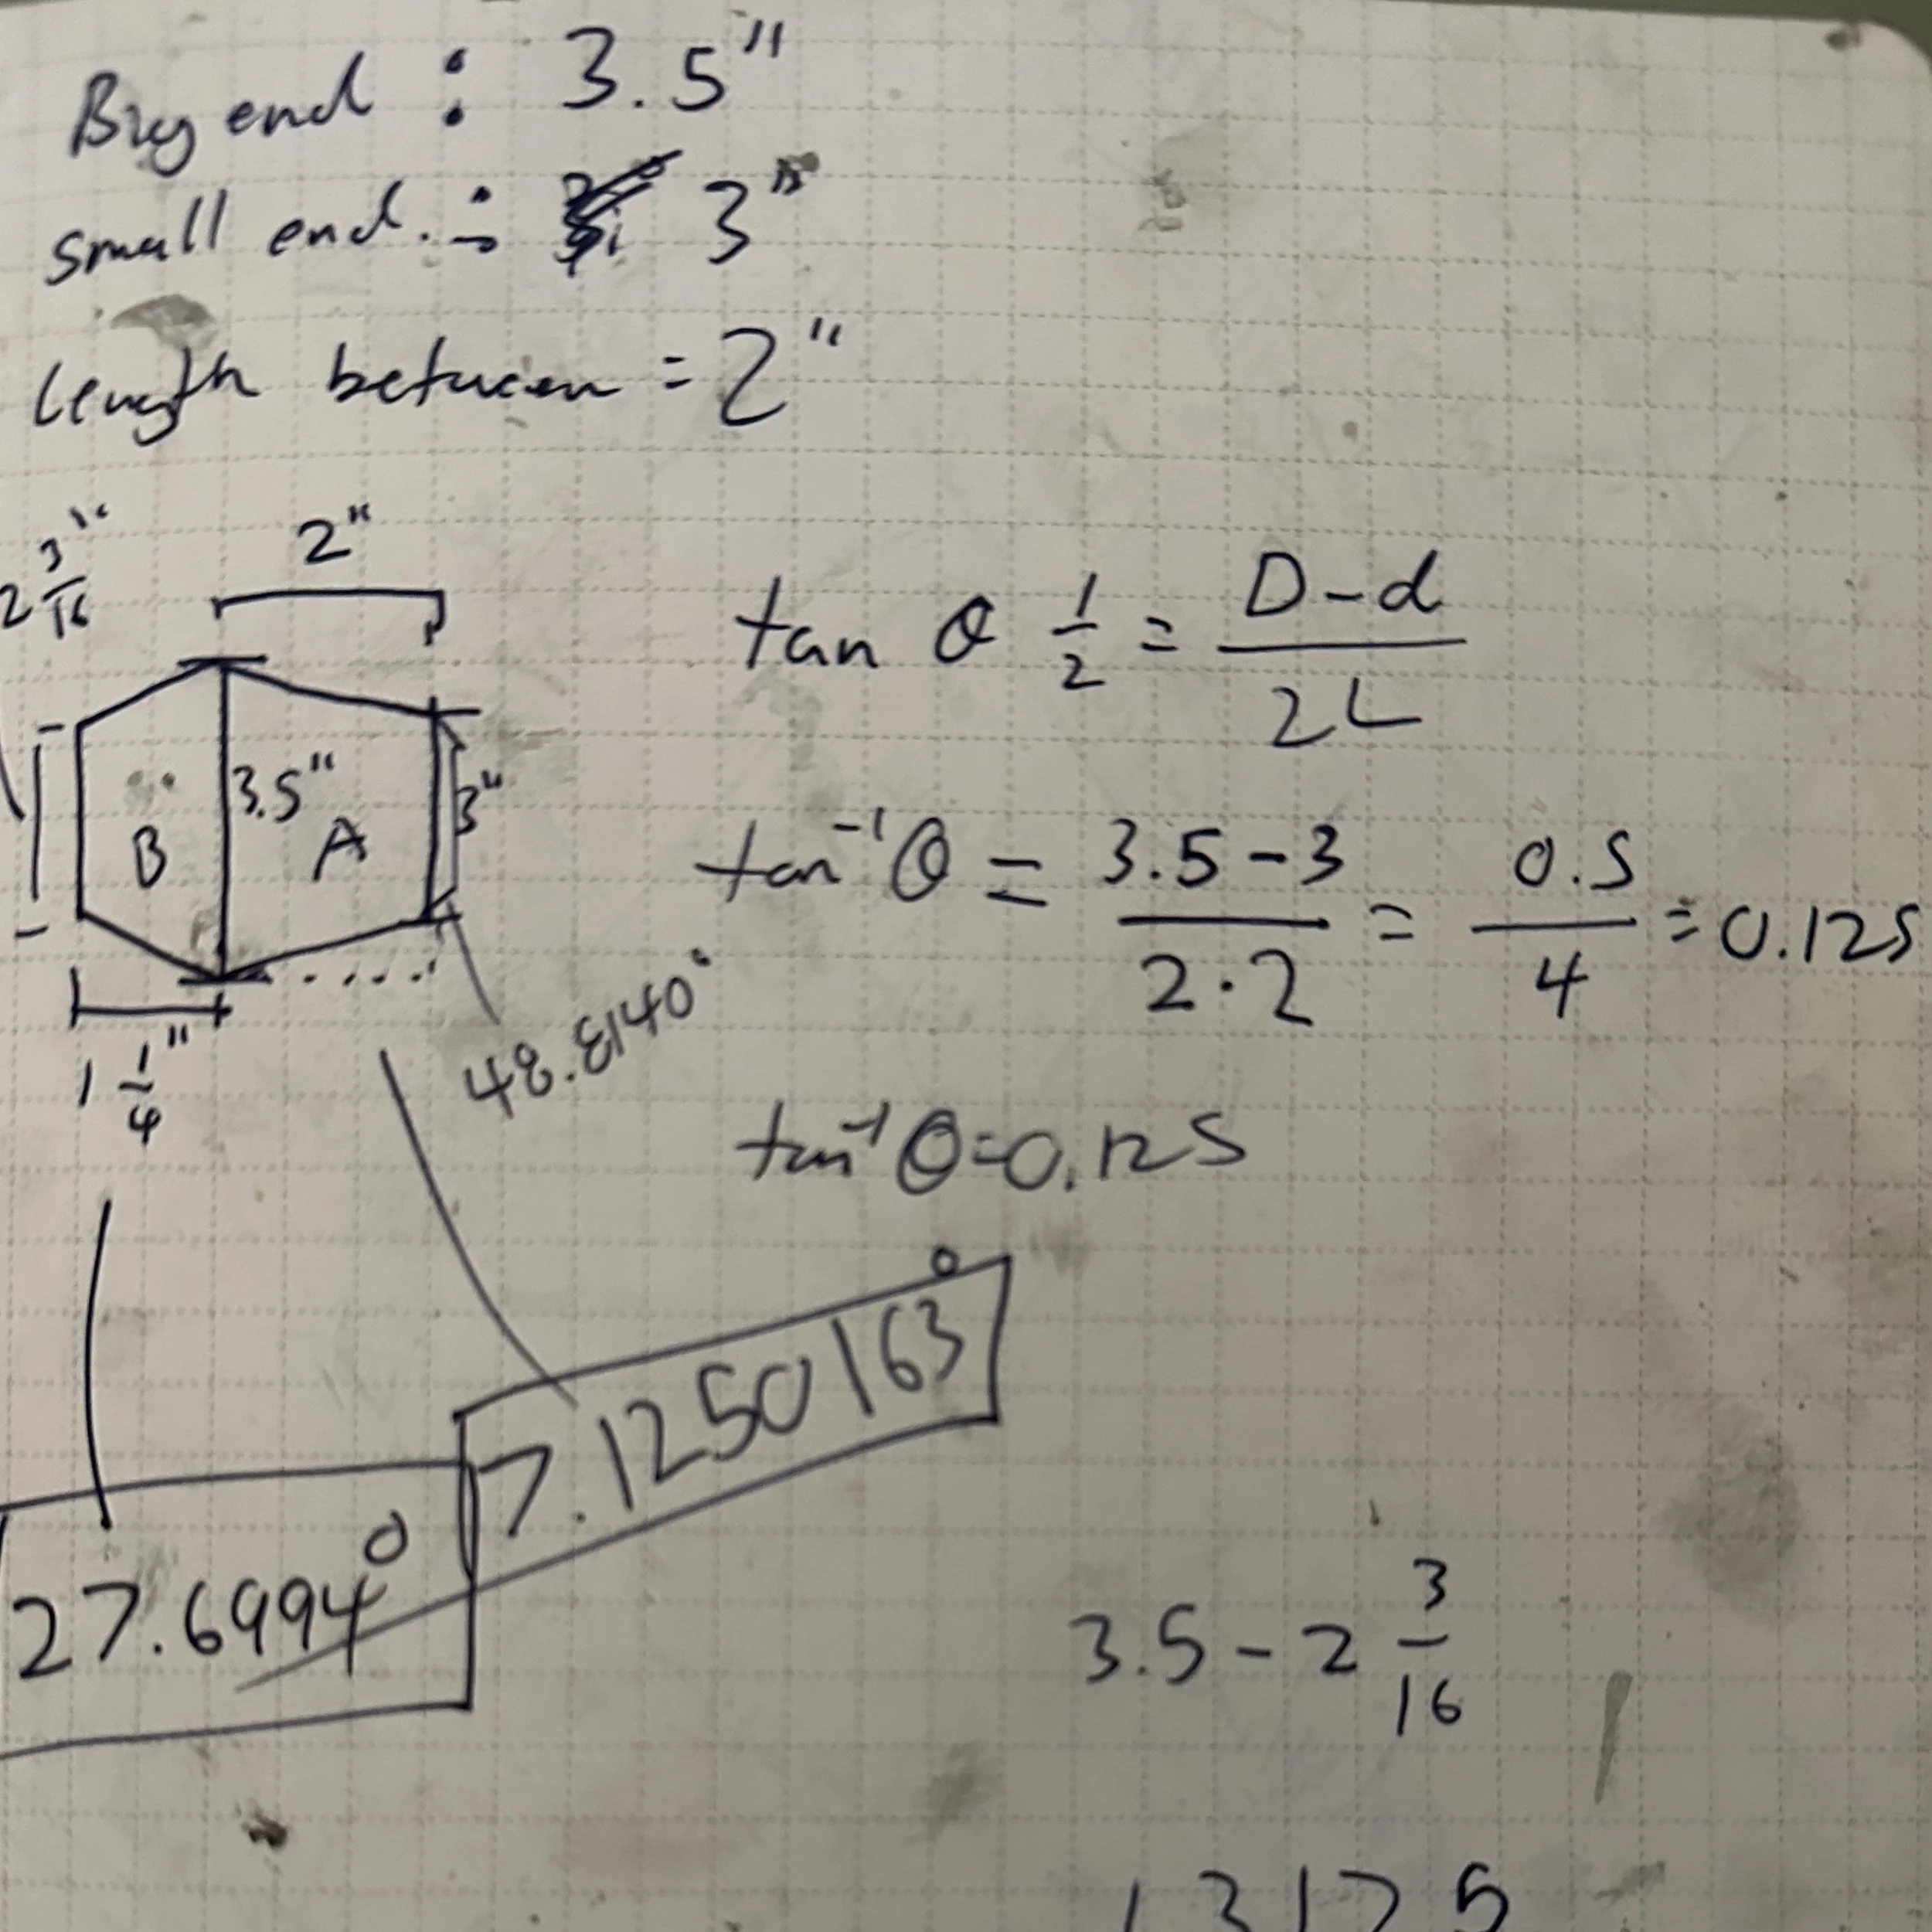 Big end : 3.5"
small end. : 3"
length between = 2"
2 3/16"
2"
tan θ 1/2 = D-d / 2L
B
3.5"
A
3"
tan⁻¹θ = 3.5-3 / 2·2 = 0.5 / 4 = 0.125
1 1/4"
48.8140°
tan⁻¹ θ=0.125
7.1250163°
27.6994°
3.5 - 2 3/16
1.3125